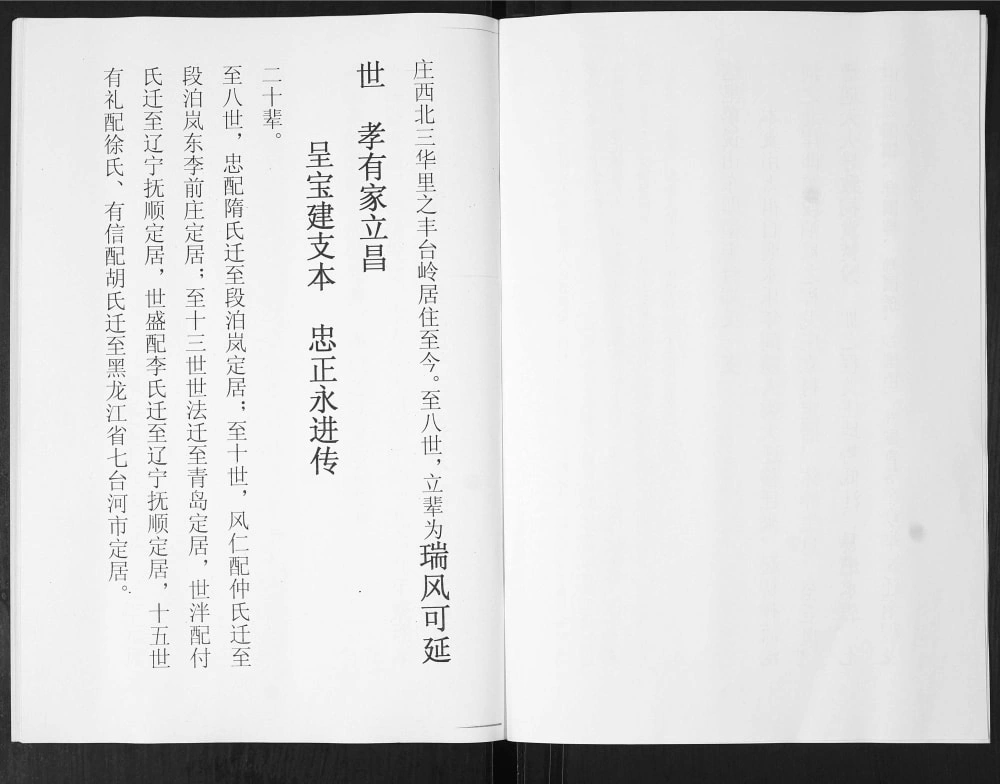 庄西北三华里之丰台岭居住至今。至八世，立辈为瑞风可延
世　孝有家立昌
呈宝建支本　忠正永进传
二十辈。
至八世，忠配隋氏迁至段泊岚定居；至十世，风仁配仲氏迁至
段泊岚东李前庄定居；至十三世世法迁至青岛定居，世泮配付
氏迁至辽宁抚顺定居，世盛配李氏迁至辽宁抚顺定居，十五世
有礼配徐氏、有信配胡氏迁至黑龙江省七台河市定居。